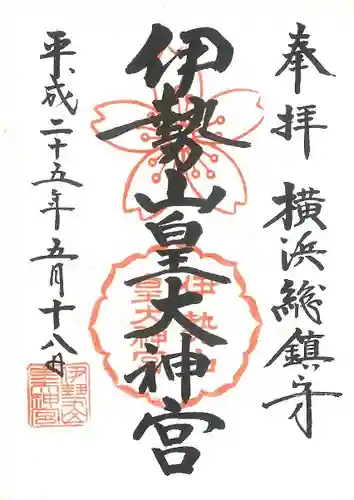 奉拝 横浜総鎮守
伊勢山皇大神宮
平成二十五年五月十八日
伊勢山
皇大神宮